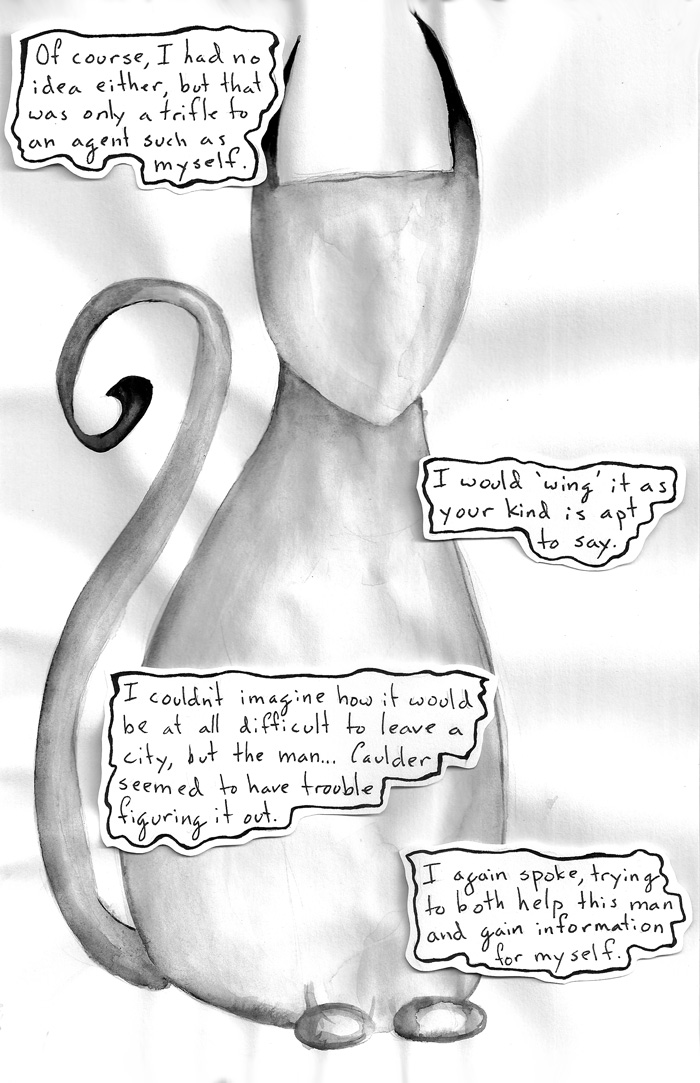 Of course, I had no
idea either, but that
was only a trifle to
an agent such as
myself.
I would 'wing' it as
your kind is apt
to say.
I couldn't imagine how it would
be at all difficult to leave a
city, but the man... Caulder
seemed to have trouble
figuring it out.
I again spoke, trying
to both help this man
and gain information
for myself.